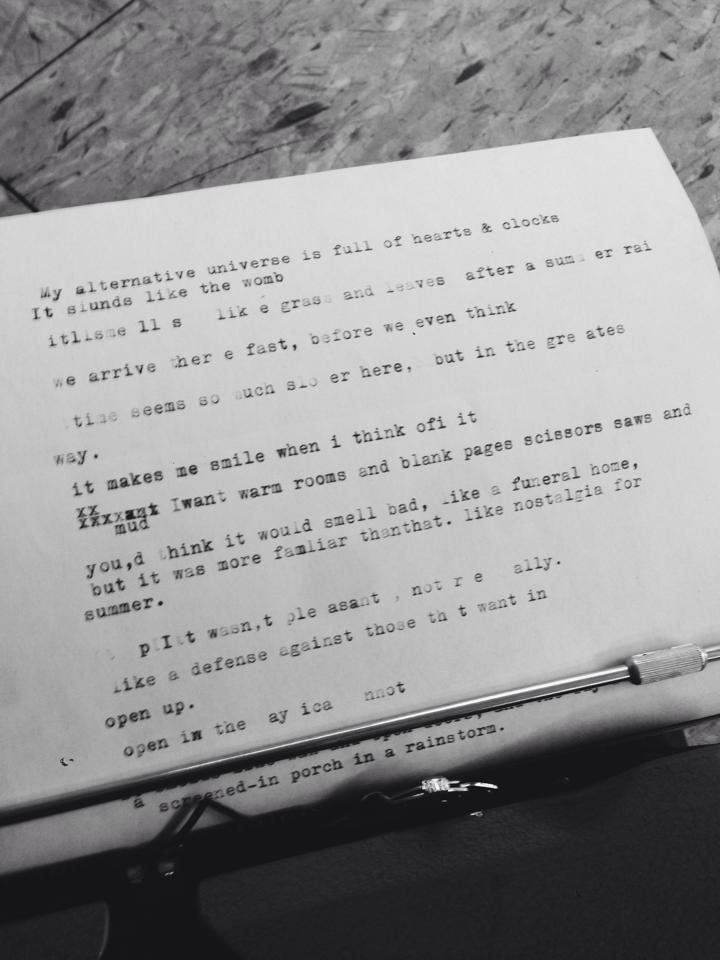 My alternative universe is full of hearts & clocks
It siunds like the womb
itlisme ll s lik e grass and leaves after a sum er rai
we arrive ther e fast, before we even think
time seems so much slo er here, but in the gre ates
way.
it makes me smile when i think ofi it
xx
xxxxant Iwant warm rooms and blank pages scissors saws and
mud
you,d think it would smell bad, like a funeral home,
but it was more famliar thanthat. like nostalgia for
summer.
p It wasn,t ple asant , not r e ally.
like a defense against those th t want in
open up.
open in the ay ica nnot
a screened-in porch in a rainstorm.